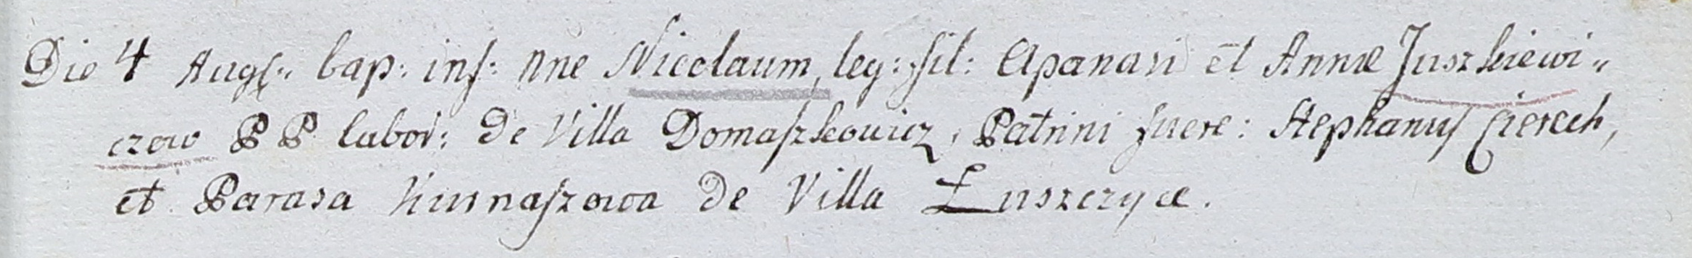 Die 4 Augs: bap: inf: nne Nicolaum, leg: fil: Apanasi et Annæ Juszkiewi„
czow PP labor: de Villa Domaszkowicz, Patrini fuere: Stephanus Cierech,
et Parasa Kurnaszowa de Villa Łuszczyce.